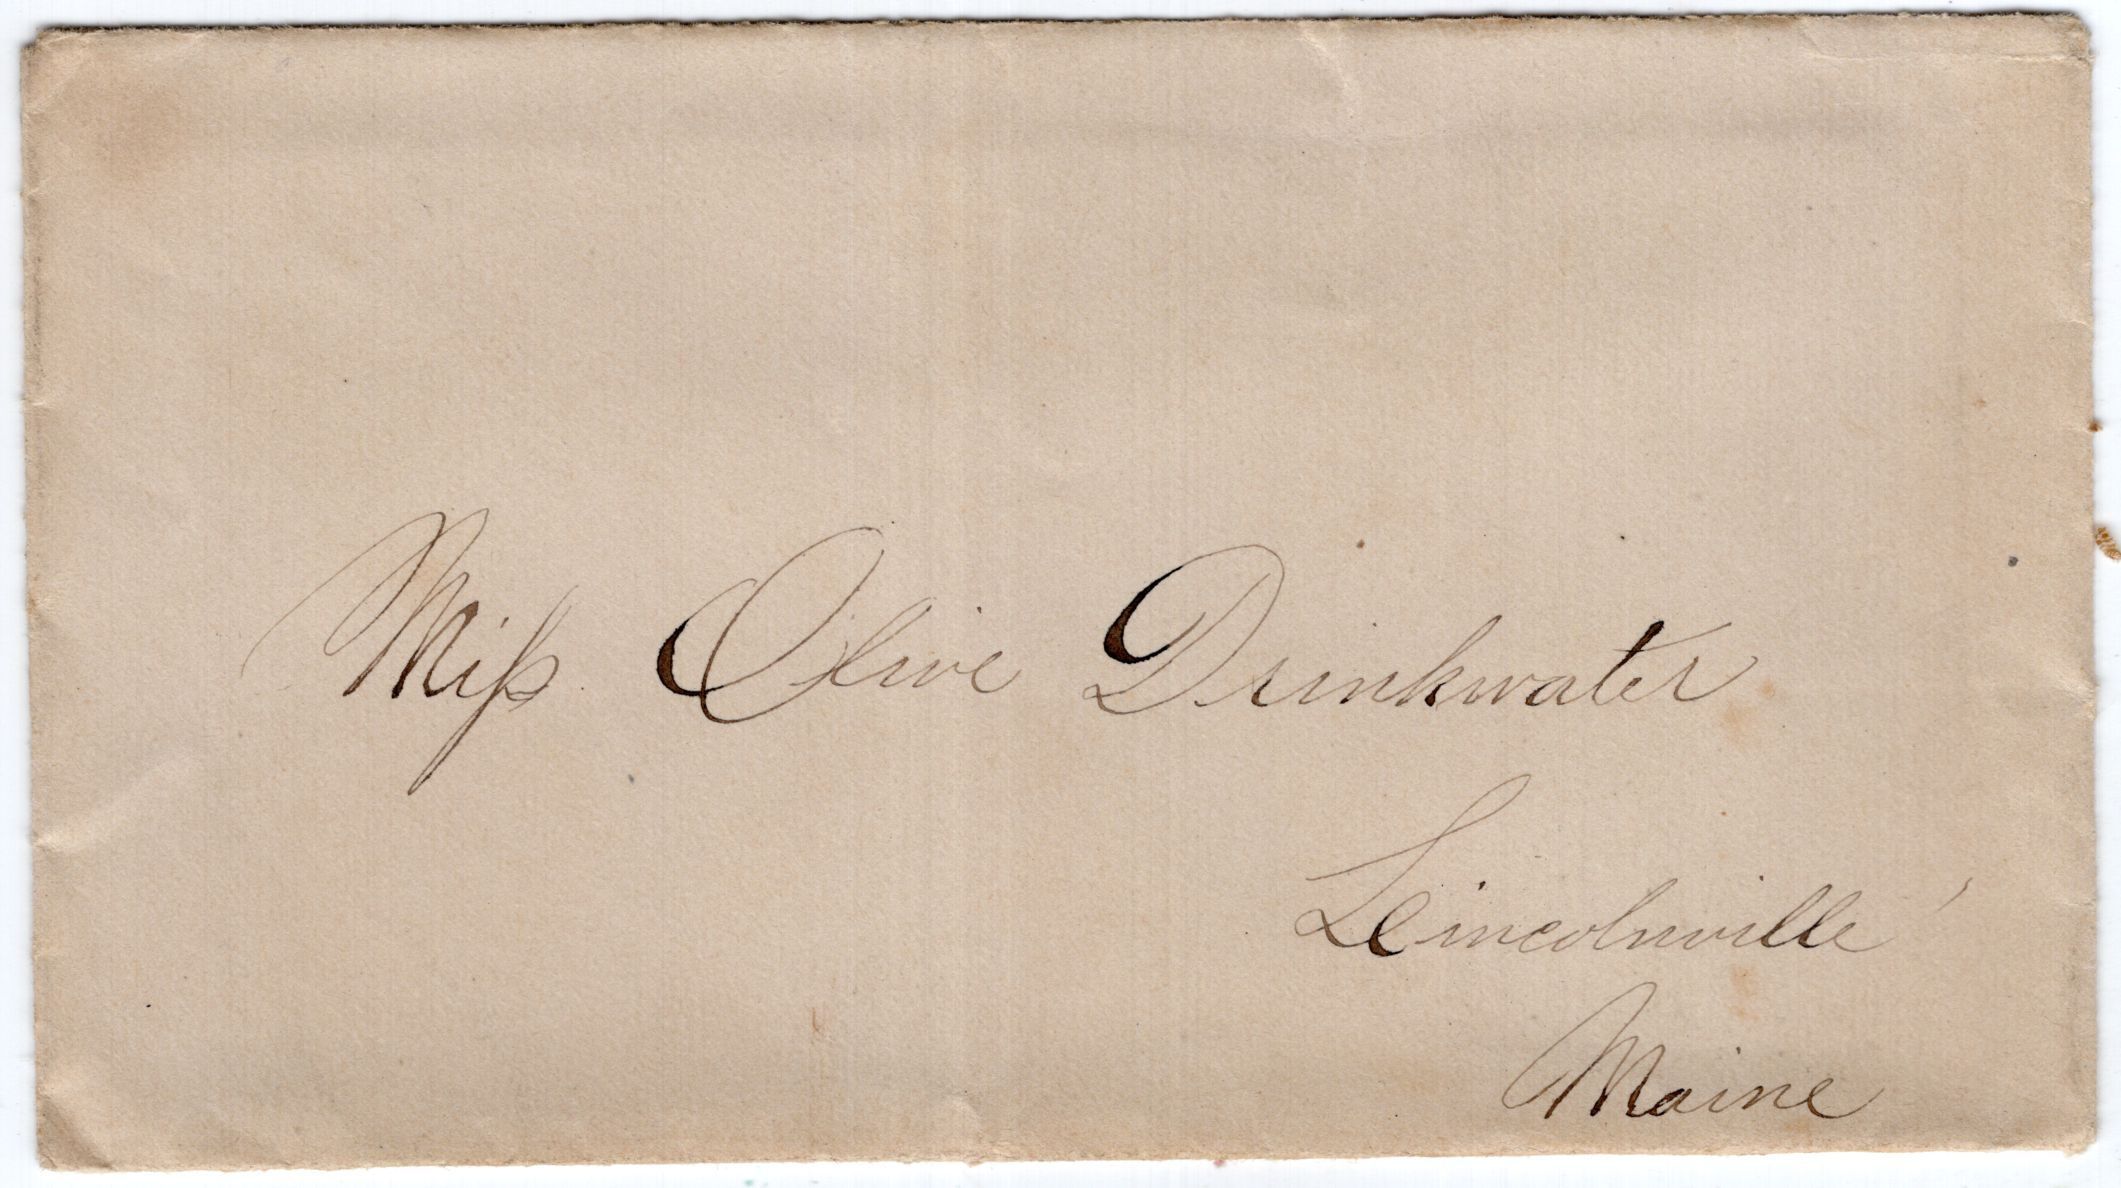 Miss Olive Drinkwater
Lincolnville
Maine